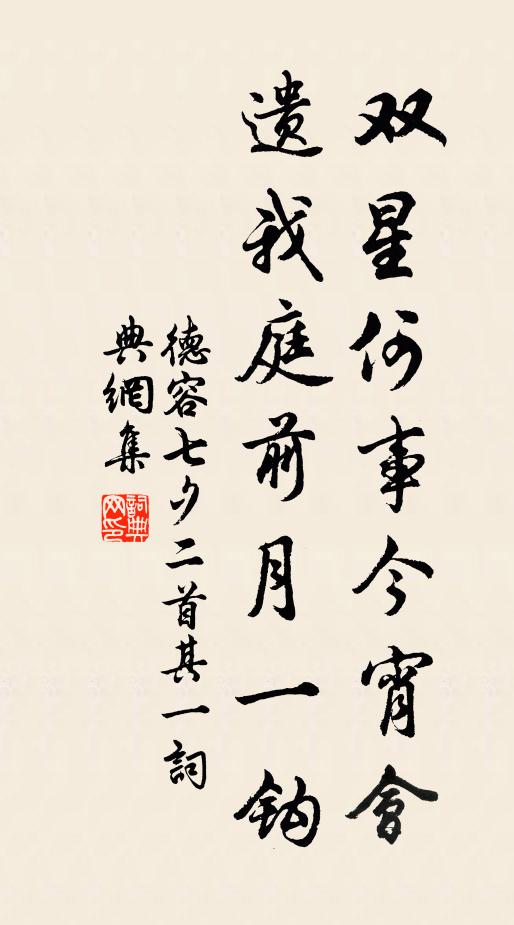 双星何事今宵會
遗我庭前月一鈎
德容七夕二首其一詞
典網集
詞典
网印